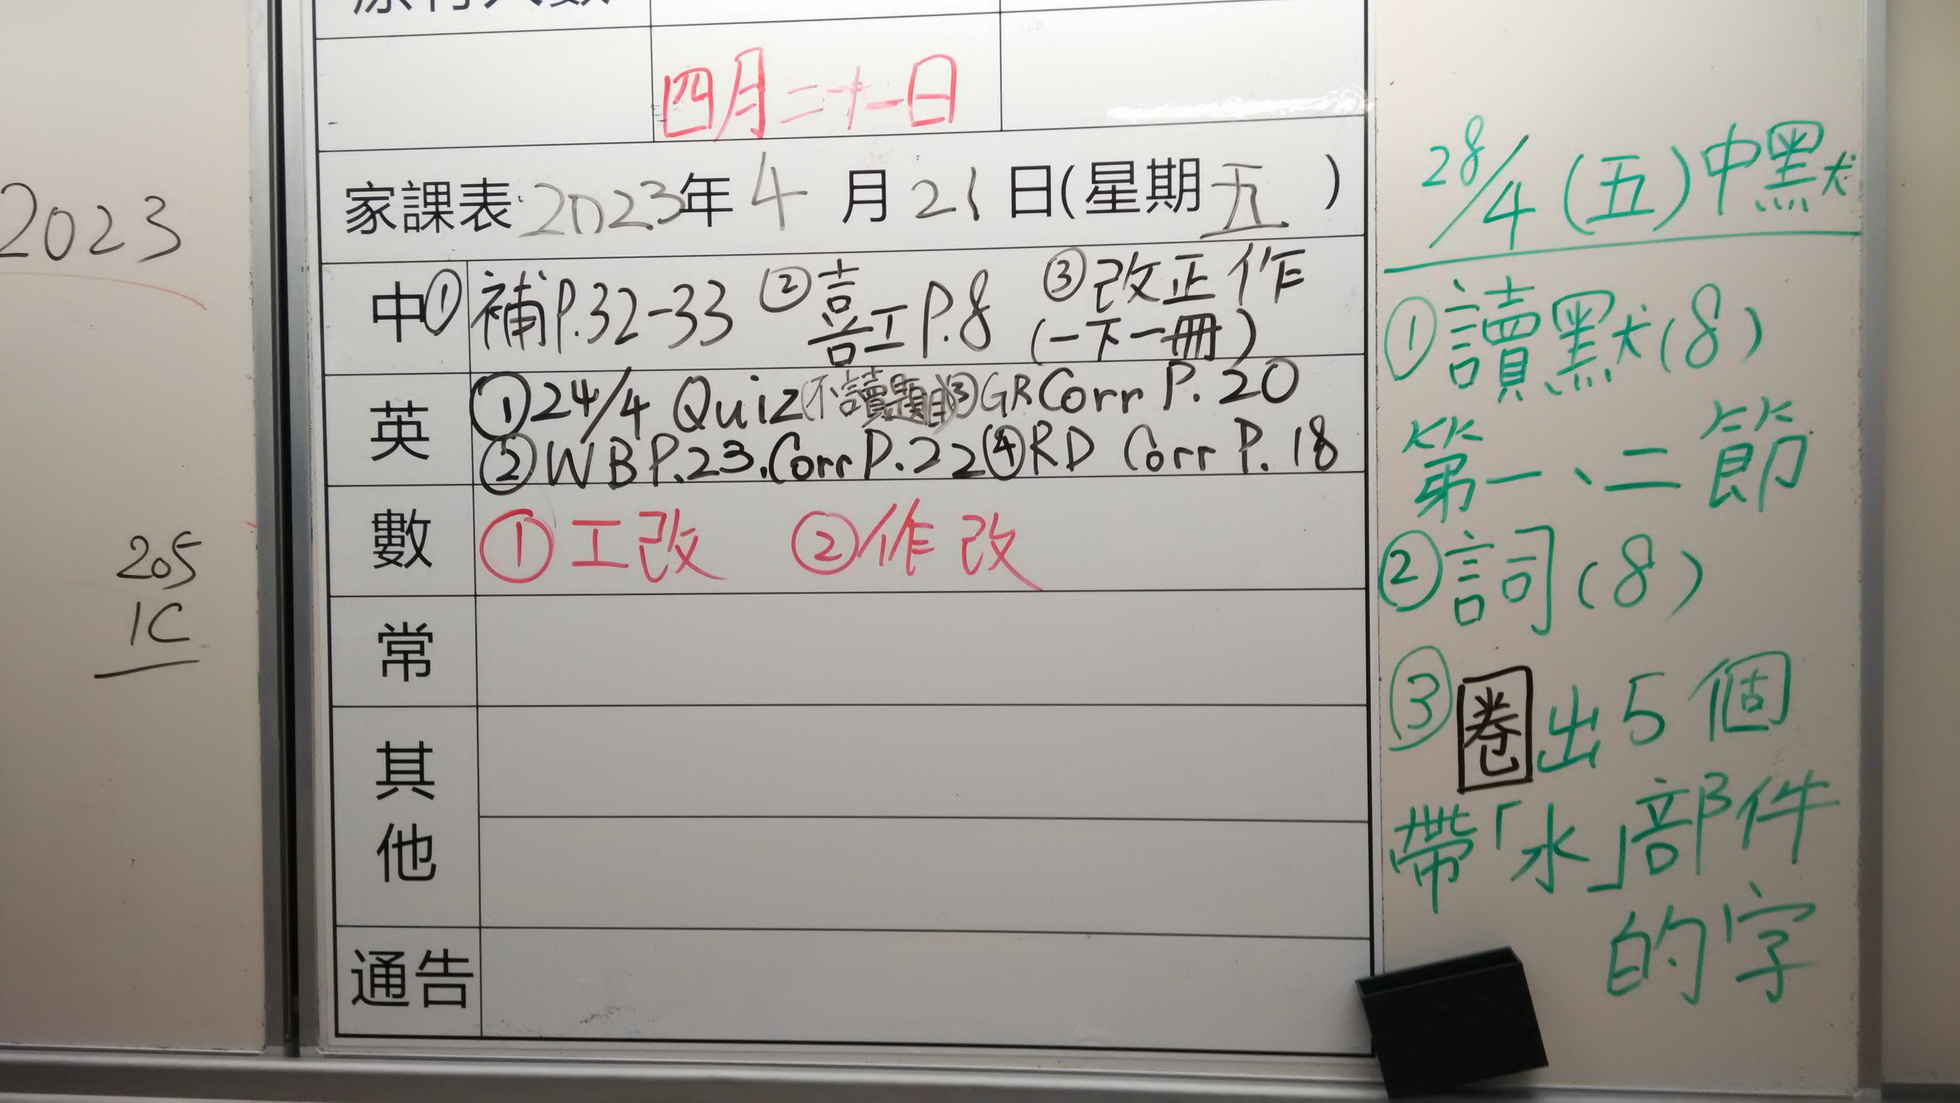 2023
205
1C
四月二十一日
家課表:2023年4月21日(星期五)
中 ①補P.32-33 ②喜工P.8 ③改正作
(一下一冊)
英 ①24/4 Quiz(不讀題目)③GR Corr P.20
②WB P.23.Corr P.22④RD Corr P.18
數 ①工改 ②作改
常
其他
通告
28/4(五)中默
①讀默(8)
第一、二節
②詞(8)
③圈出5個
帶「水」部件
的字